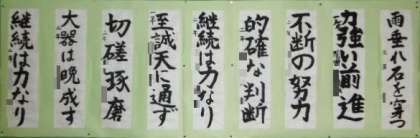 雨垂れ石を穿つ
力強い前進
不断の努力
的確な判断
継続は力なり
至誠天に通ず
切磋琢磨
大器は晩成す
継続は力なり